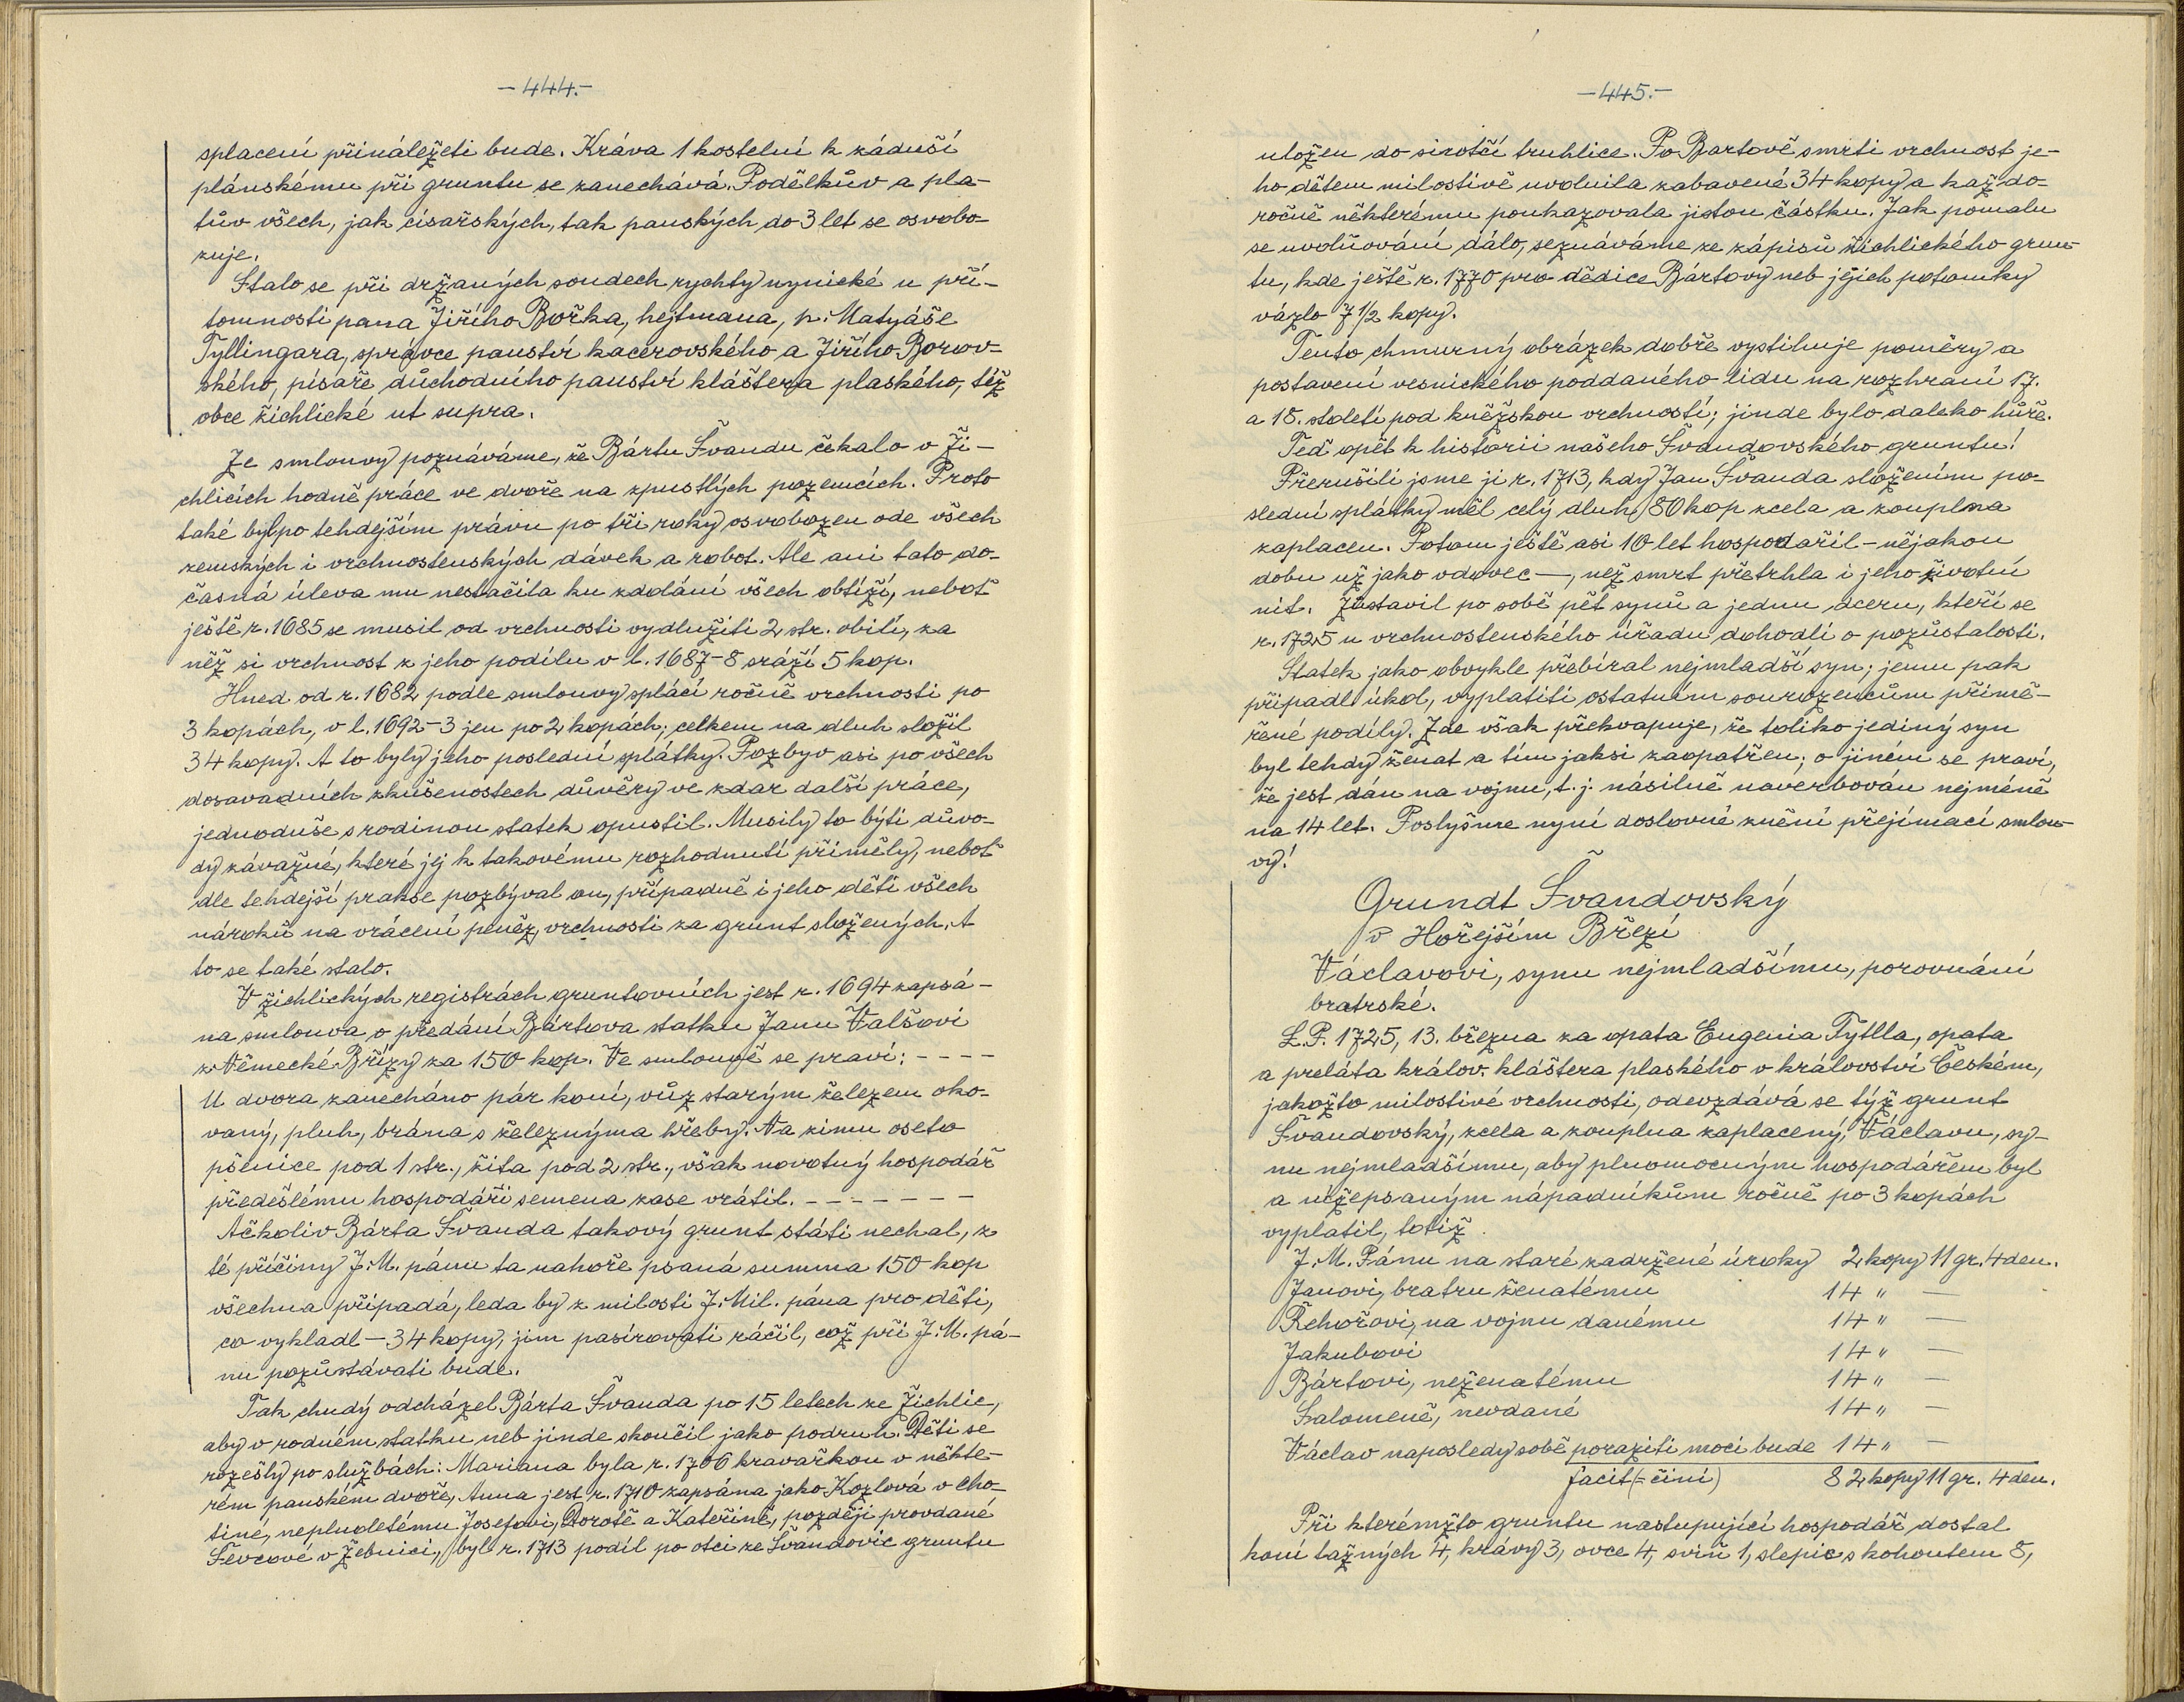 -444.-
splacení přináležeti bude. Kráva 1 kostelní k záduší
plánskému při gruntu se zanechává. Podělkův a pla-
tův všech, jak císařských, tak panských do 3 let se osvobo-
zuje.
Stalo se při držaných soudech rychty nynické u pří-
tomnosti pana Jiřího Bořka, hejtmana, p. Matyáše
Tyllingara, správce panství kacerovského a Jiřího Borov-
ského, písaře důchodního panství kláštera plaského, též
obce žichlické ut supra.
Ze smlouvy poznáváme, že Bártu Švandu čekalo v Ži-
chlicích hodně práce ve dvoře na zpustlých pozemcích. Proto
také byl po tehdejším právu po tři roky osvobozen ode všech
zemských i vrchnostenských dávek a robot. Ale ani tato do-
časná úleva mu nestačila ku zdolání všech obtíží, neboť
ještě r. 1685 se musil od vrchnosti vydlužiti 2 str. obilí, za
něž si vrchnost z jeho podílu v l. 1687-8 sráží 5 kop.
Hned od r. 1682 podle smlouvy splácí ročně vrchnosti po
3 kopách, v l. 1692-3 jen po 2 kopách; celkem na dluh složil
34 kopy. A to byly jeho poslední splátky. Pozbyv asi po všech
dosavadních zkušenostech důvěry ve zdar další práce,
jednoduše s rodinou statek opustil. Musily to býti důvo-
dy závažné, které jej k takovému rozhodnutí přiměly, neboť
dle tehdejší prakse pozbýval on, případně i jeho děti všech
nároků na vrácení peněz, vrchnosti za grunt složených. A
to se také stalo.
V žichlických registrách gruntovních jest r. 1694 zapsá-
na smlouva o předání Bártova statku Janu Valšovi
z Německé Břízy za 150 kop. Ve smlouvě se praví: - - - -
U dvora zanecháno pár koní, vůz starým železem oko-
vaný, pluh, brána s železnýma hřeby. Na zimu oseto
pšenice pod 1 str., žita pod 2 str., však novotný hospodář
předešlému hospodáři semena zase vrátil. - - - - - - -
Ačkoliv Bárta Švanda takový grunt státi nechal, z
té příčiny J. M. pánu ta nahoře psaná summa 150 kop
všechna připadá, leda by z milosti J. Mil. pána pro děti,
co vykladl - 34 kopy, jim pasírovati ráčil, což při J. M. pá-
nu pozůstávati bude.
Tak chudý odcházel Bárta Švanda po 15 letech ze Žichlic,
aby v rodném statku neb jinde skončil jako podruh. Děti se
rozešly po službách: Mariana byla r. 1706 kravařkou v někte-
rém panském dvoře, Anna jest r. 1710 zapsána jako Kozlová v Cho-
tiné, nepluoletému Josefovi, Dorotě a Kateřině, později provdané
Ševcové v Žebnici, byl r. 1713 podíl po otci ze Švandovic gruntu
-445.-
uložen do sirotčí truhlice. Po Bartově smrti vrchnost je-
ho dětem milostivě uvolnila zabavené 34 kopy a každo-
ročně některému poukazovala jistou částku. Jak pomalu
se uvolňování dálo, seznáváme ze zápisů žichlického grun-
tu, kde ještě r. 1770 pro dědice Bártovy neb jejich potomky
vázlo 7 1/2 kopy.
Tento chmurný obrázek dobře vystihuje poměry a
postavení vesnického poddaného lidu na rozhraní 17.
a 18. století pod kněžskou vrchností; jinde bylo daleko hůře.
Teď opět k historii našeho Švandovského gruntu!
Přerušili jsme ji r. 1713, kdy Jan Švanda složením po-
slední splátky měl celý dluh 80 kop zcela a zouplna
zaplacen. Potom ještě asi 10 let hospodařil - nějakou
dobu už jako vdovec —, než smrt přetrhla i jeho životní
nit. Zůstavil po sobě pět synů a jednu dceru, kteří se
r. 1725 u vrchnostenského úřadu dohodli o pozůstalosti.
Statek jako obvykle přebíral nejmladší syn; jemu pak
připadl úkol, vyplatiti ostatním sourozencům přimě-
řené podíly. Zde však překvapuje, že toliko jediný syn
byl tehdy ženat a tím jaksi zaopatřen; o jiném se praví,
že jest dán na vojnu, t. j. násilně naverbován nejméně
na 14 let. Poslyšme nyní doslovné znění přejímací smlou-
vy!
Grundt Švandovský
v Hořejším Březí
Václavovi, synu nejmladšímu, porovnání
bratrské.
L. P. 1725, 13. března za opata Eugenia Tyttla, opata
a preláta králov. kláštera plaského v království Českém,
jakožto milostivé vrchnosti, odevzdává se týž grunt
Švandovský, zcela a zouplna zaplacený, Václavu, sy-
nu nejmladšímu, aby plnomocným hospodářem byl
a nížepsaným nápadníkům ročně po 3 kopách
vyplatil, totiž
J. M. Pánu na staré zadržené úroky 2 kopy 11 gr. 4 den.
Janovi, bratru ženatému 14 " —
Řehořovi, na vojnu danému 14 " —
Jakubovi 14 " —
Bártovi, neženatému 14 " —
Salomeně, nevdané 14 " —
Václav naposledy sobě poraziti moci bude 14 " —
facit (= činí) 82 kopy 11 gr. 4 den.
Při kterémžto gruntu nastupující hospodář dostal
koní tažných 4, krávy 3, ovce 4, sviň 1, slepic s kohoutem 8,